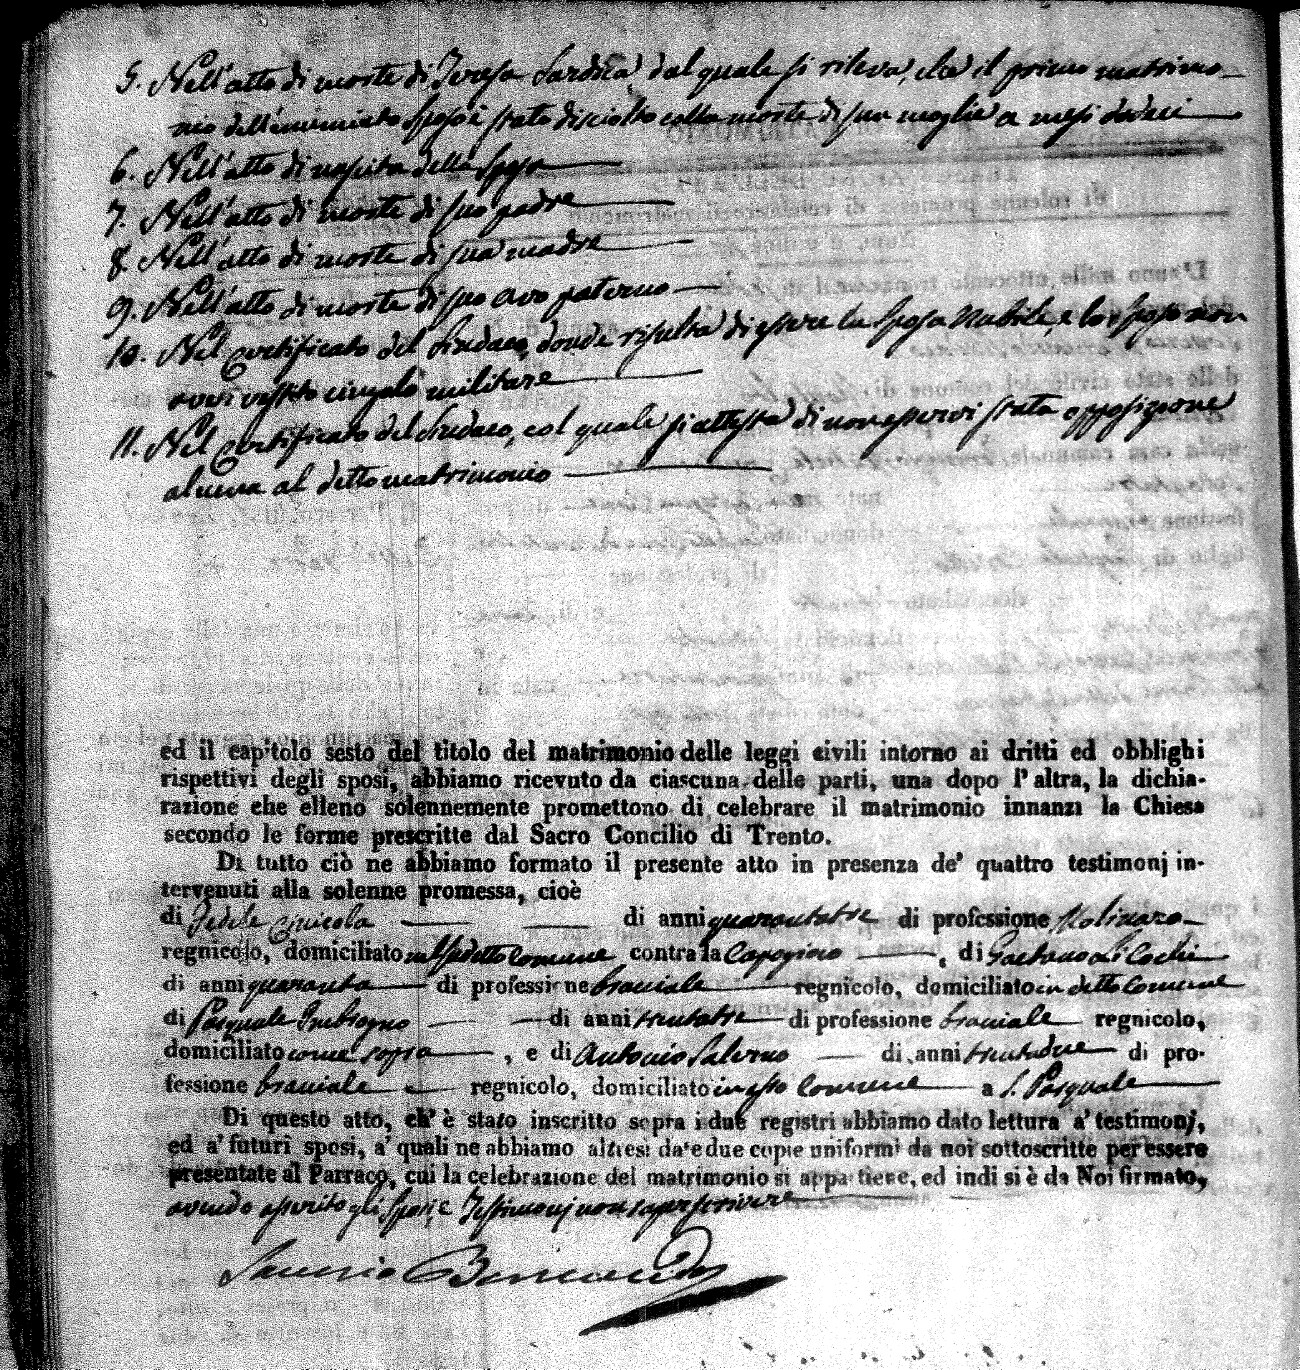 5. Nell'atto di morte di Teresa Sardisca, dal quale si rileva, che il primo matrimo-
nio dell'enunciato Sposo è stato disciolto colla morte di sua moglie a mesi dodeci
6. Nell'atto di nascita della Sposa
7. Nell'atto di morte di suo padre
8. Nell'atto di morte di sua madre
9. Nell'atto di morte di suo avo paterno
10. Nel certificato del Sindaco, donde risulta di essere la Sposa Nubile, e lo Sposo non
avere vestito cingolo militare
11. Nel certificato del Sindaco, col quale si attesta di non esservi stata opposizione
alcuna al detto matrimonio
ed il capitolo sesto del titolo del matrimonio delle leggi civili intorno ai dritti ed obblighi
rispettivi degli sposi, abbiamo ricevuto da ciascuna delle parti, una dopo l'altra, la dichia-
razione che elleno solennemente promettono di celebrare il matrimonio innanzi la Chiesa
secondo le forme prescritte dal Sacro Concilio di Trento.
Di tutto ciò ne abbiamo formato il presente atto in presenza de' quattro testimonj in-
tervenuti alla solenne promessa, cioè
di Fedele di anni quarantatre di professione Molinaro
regnicolo, domiciliato nell'sudetto Comune contrada Capogiro, di Gaetano
di anni quaranta di professione bracciale regnicolo, domiciliato in detto Comune
di Pasquale Imbrogno di anni trentatre di professione bracciale regnicolo,
domiciliato come sopra, e di Antonio Salerno di anni trentadue di pro-
fessione bracciale regnicolo, domiciliato in esso Comune a S. Pasquale
Di questo atto, ch' è stato inscritto sopra i due registri abbiamo dato lettura a' testimonj,
ed a' futuri sposi, a' quali ne abbiamo altresì date due copie uniformi da noi sottoscritte per essere
presentate al Parraco, cui la celebrazione del matrimonio si appartiene, ed indi si è da Noi firmato,
avendo asserito gli Sposi, e Testimonj non saper scrivere
Saverio